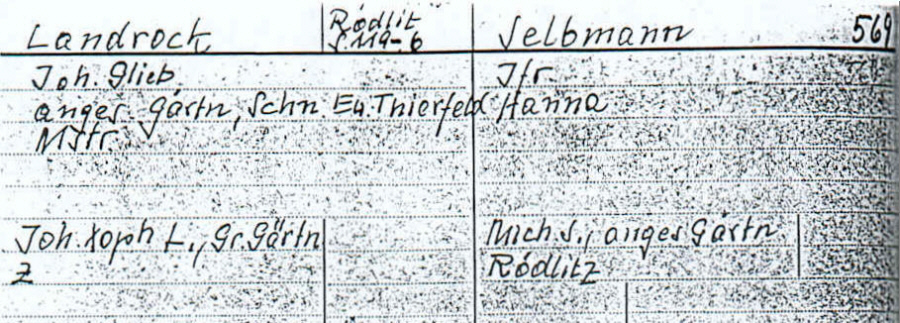 Landrock Rödlit Selbmann 569
S 119-6
Joh. Glieb Jfr
anges. Gärtn, Schn. Eu. Thierfeld Hanna
Mstr
Joh. Xoph L., Gr. Gärtn Mich. S., anges Gärtn
Z Rödlitz